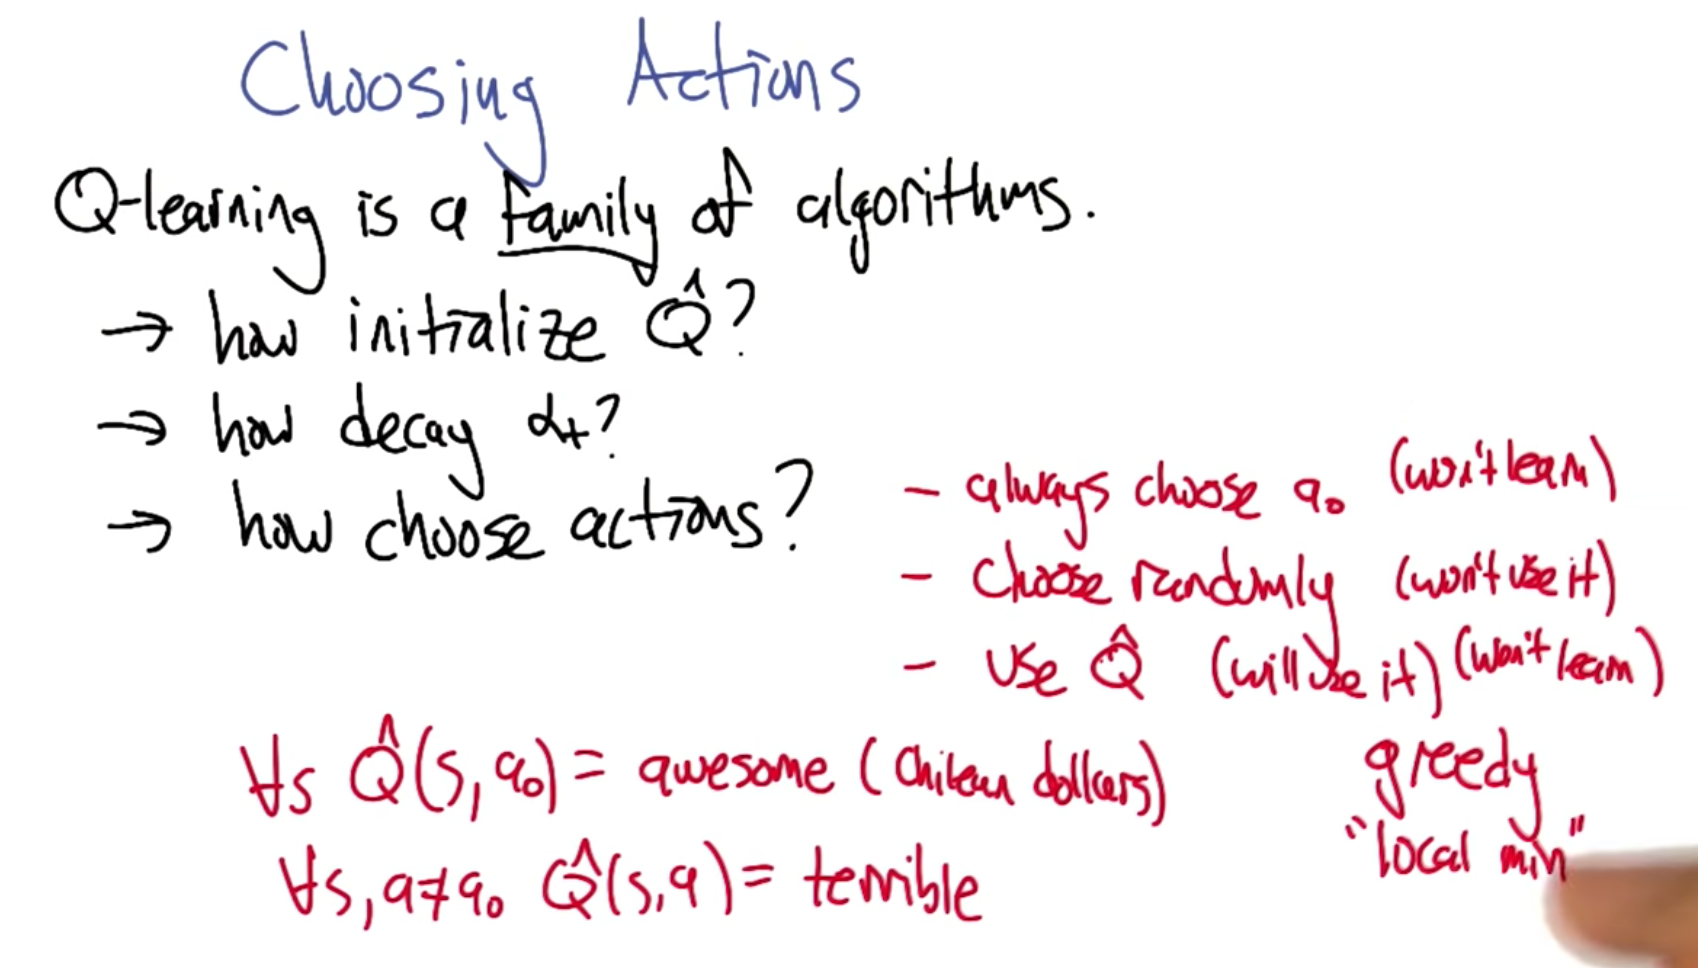 Choosing Actions
Q-learning is a family of algorithms.
→ how initialize Q̂?
→ how decay αt?
→ how choose actions?
- always choose a₀ (won't learn)
- choose randomly (won't use it)
- use Q̂ (will use it) (won't learn)
greedy
"local min"
∀s Q̂(s, a₀) = awesome (Chilean dollars)
∀s, a≠a₀ Q̂(s,a) = terrible